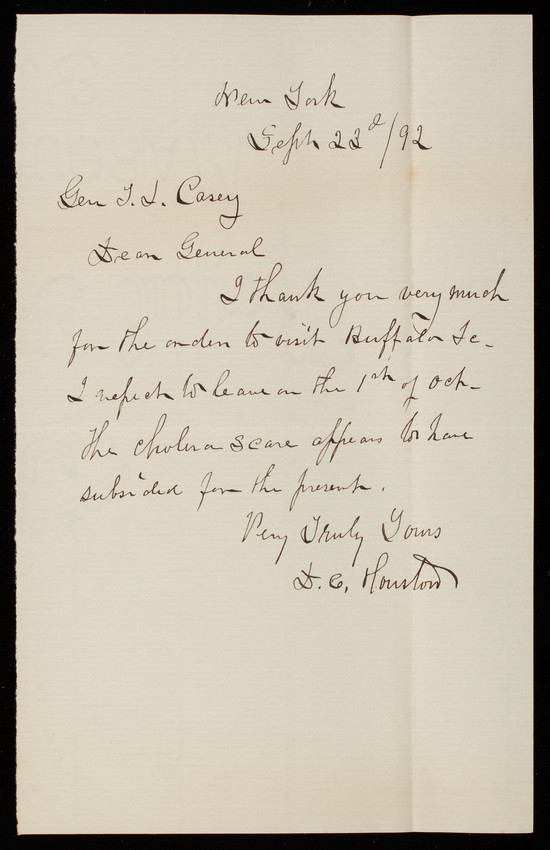 New York
Sept 22d/92
Gen T. L. Casey
Dear General
I thank you very much
for the order to visit Buffalo &c-
I expect to leave on the 1st of Oct-
The cholera scare appears to have
subsided for the present.
Very Truly Yours
D. C. Houston